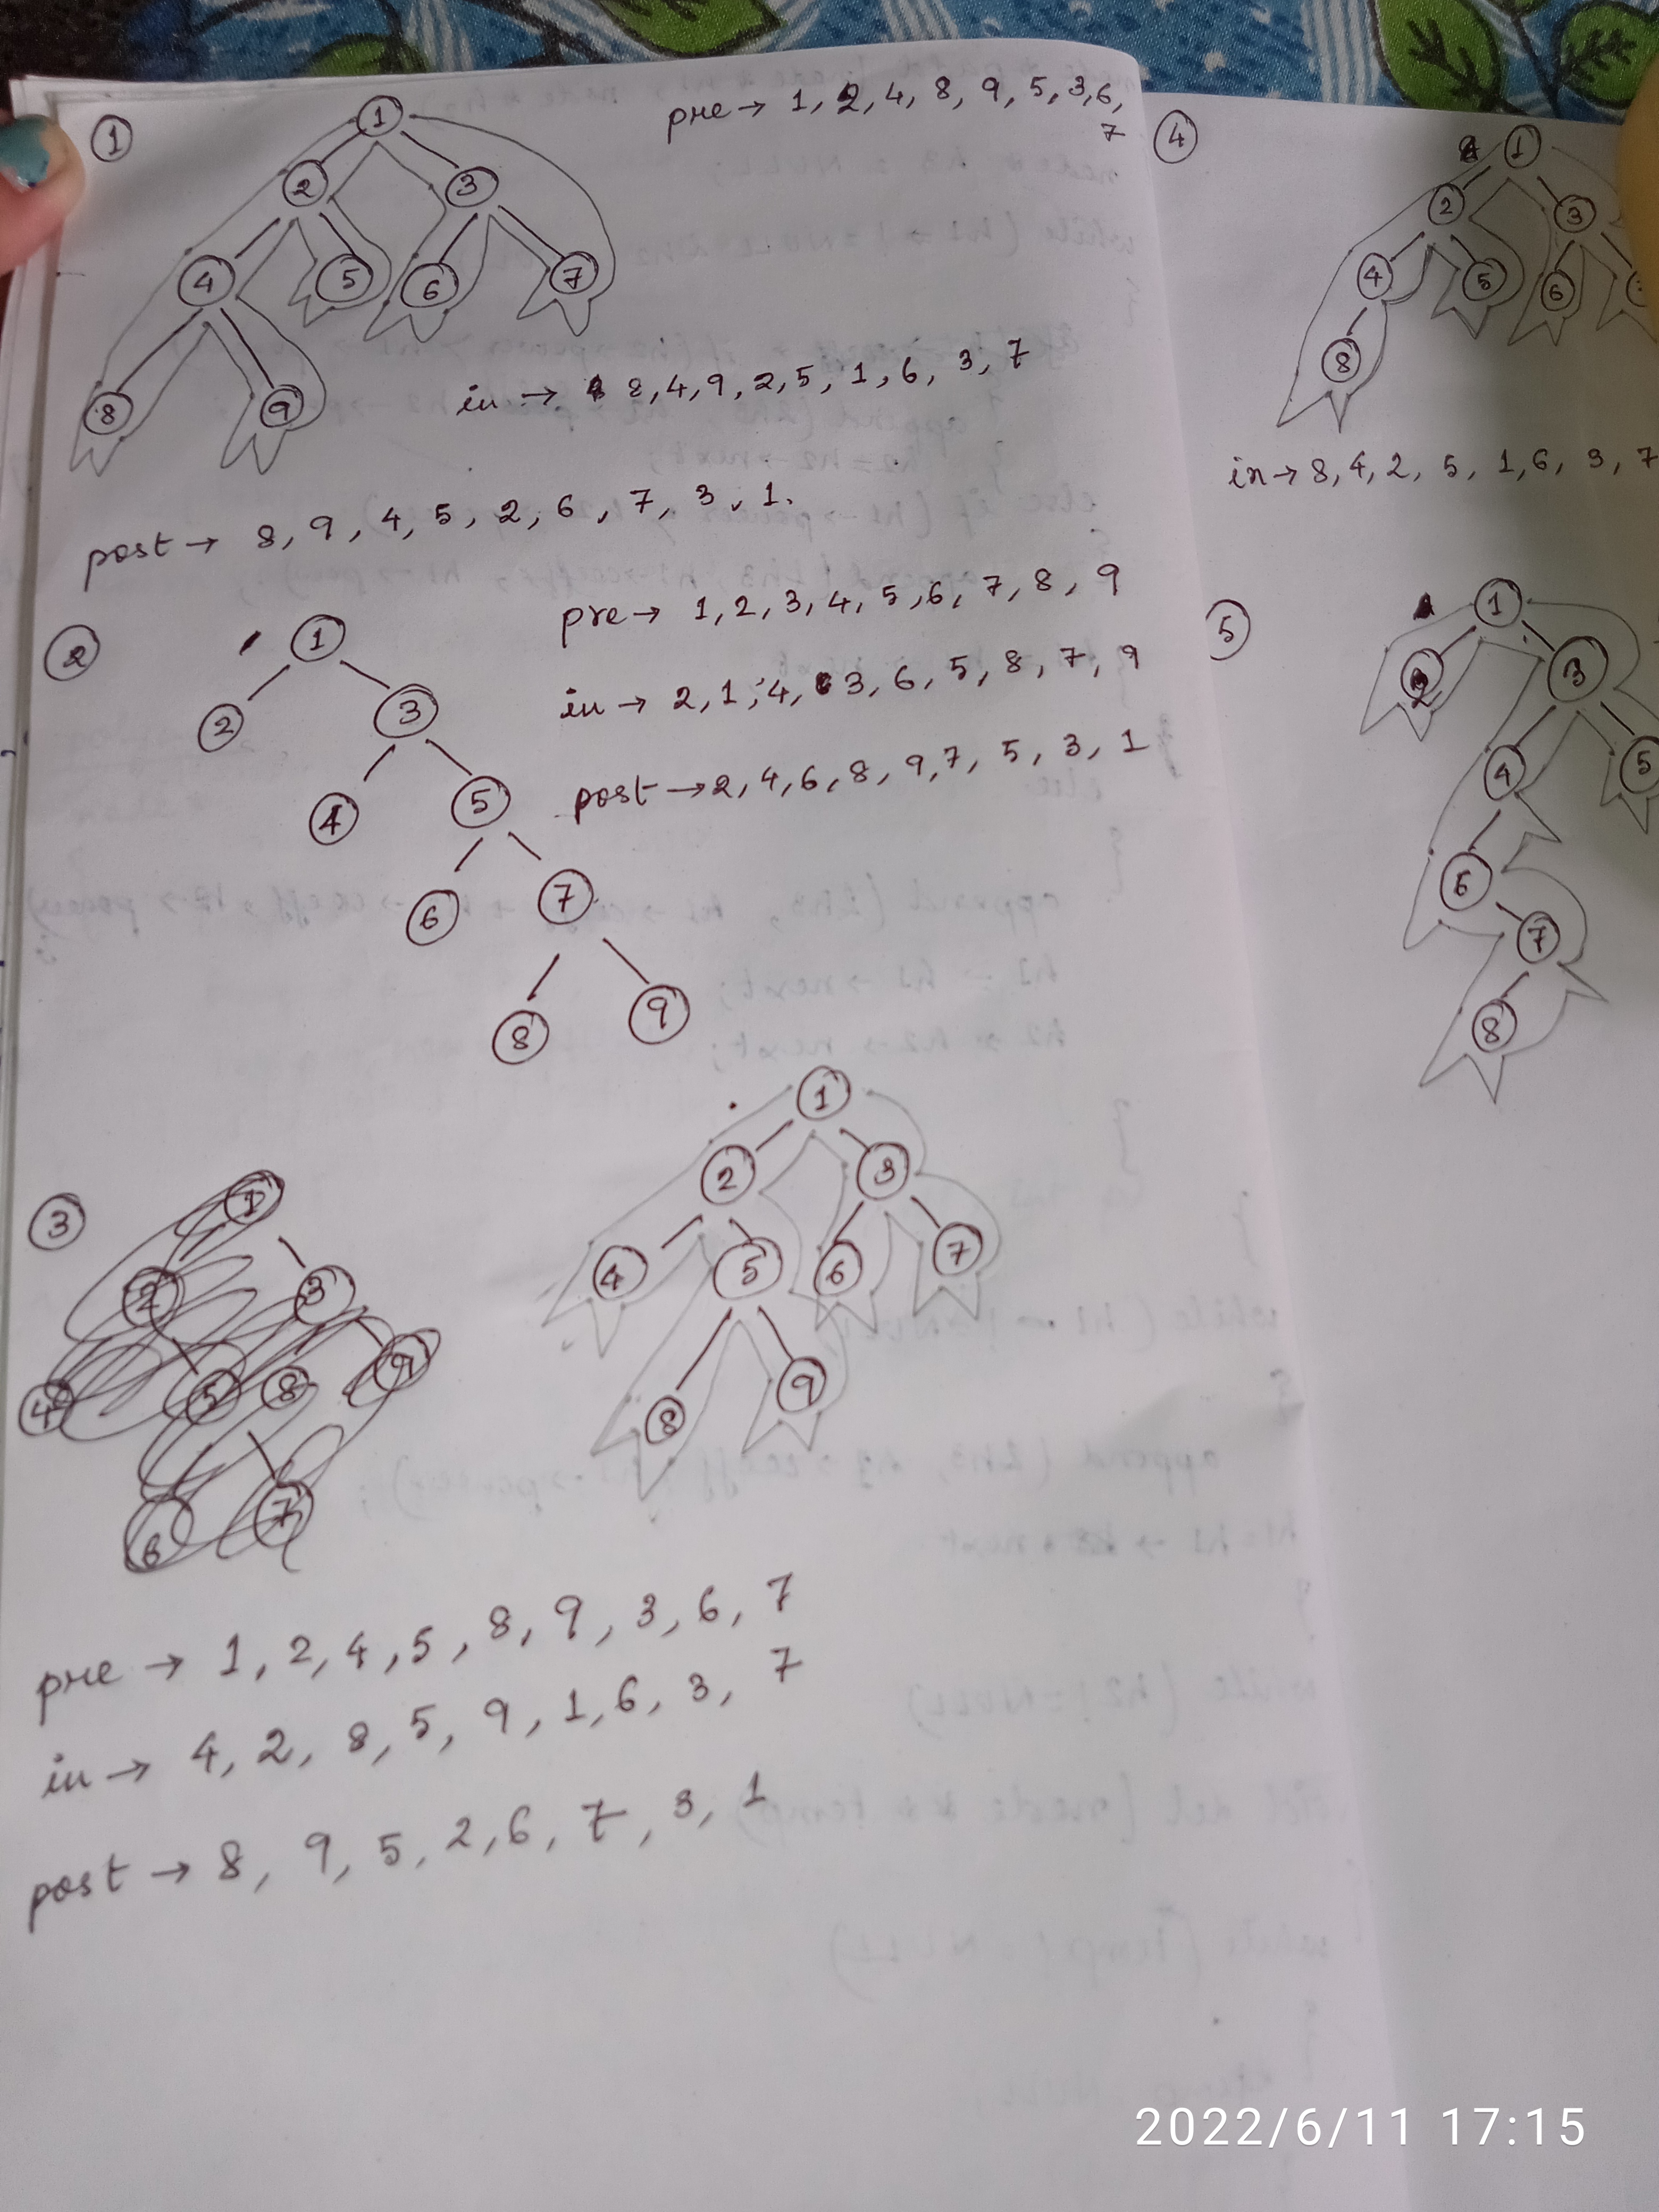 ①
1
2 3
4 5 6 7
8 9
pre → 1, 2, 4, 8, 9, 5, 3, 6,
7
in → 8, 4, 9, 2, 5, 1, 6, 3, 7
post → 8, 9, 4, 5, 2, 6, 7, 3, 1.
②
1
2 3
4 5
6 7
8 9
pre → 1, 2, 3, 4, 5, 6, 7, 8, 9
in → 2, 1, 4, 3, 6, 5, 8, 7, 9
post → 2, 4, 6, 8, 9, 7, 5, 3, 1
③
1
2 3
4 5 8 9
6 7
1
2 3
4 5 6 7
8 9
pre → 1, 2, 4, 5, 8, 9, 3, 6, 7
in → 4, 2, 8, 5, 9, 1, 6, 3, 7
post → 8, 9, 5, 2, 6, 7, 3, 1
④
1
2 3
4 5 6
8
in → 8, 4, 2, 5, 1, 6, 3, 7
⑤
1
2 3
4 5
6
7
8
2022/6/11 17:15